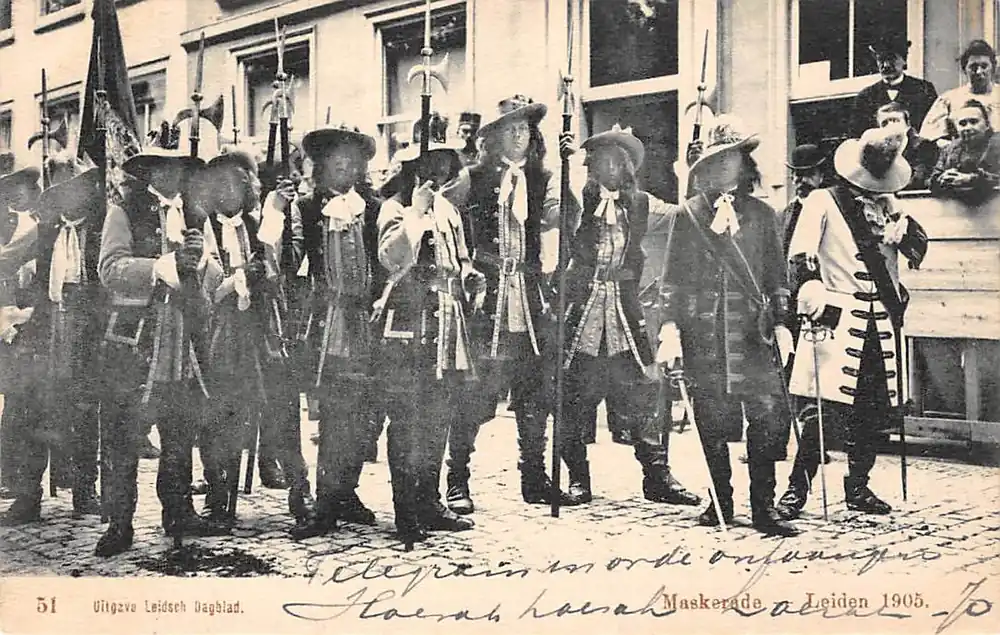 Telegram in orde ontvangen
51 Uitgave Leidsch Dagblad. Maskerade Leiden 1905.
Hoerah hoerah hoerah - Jo